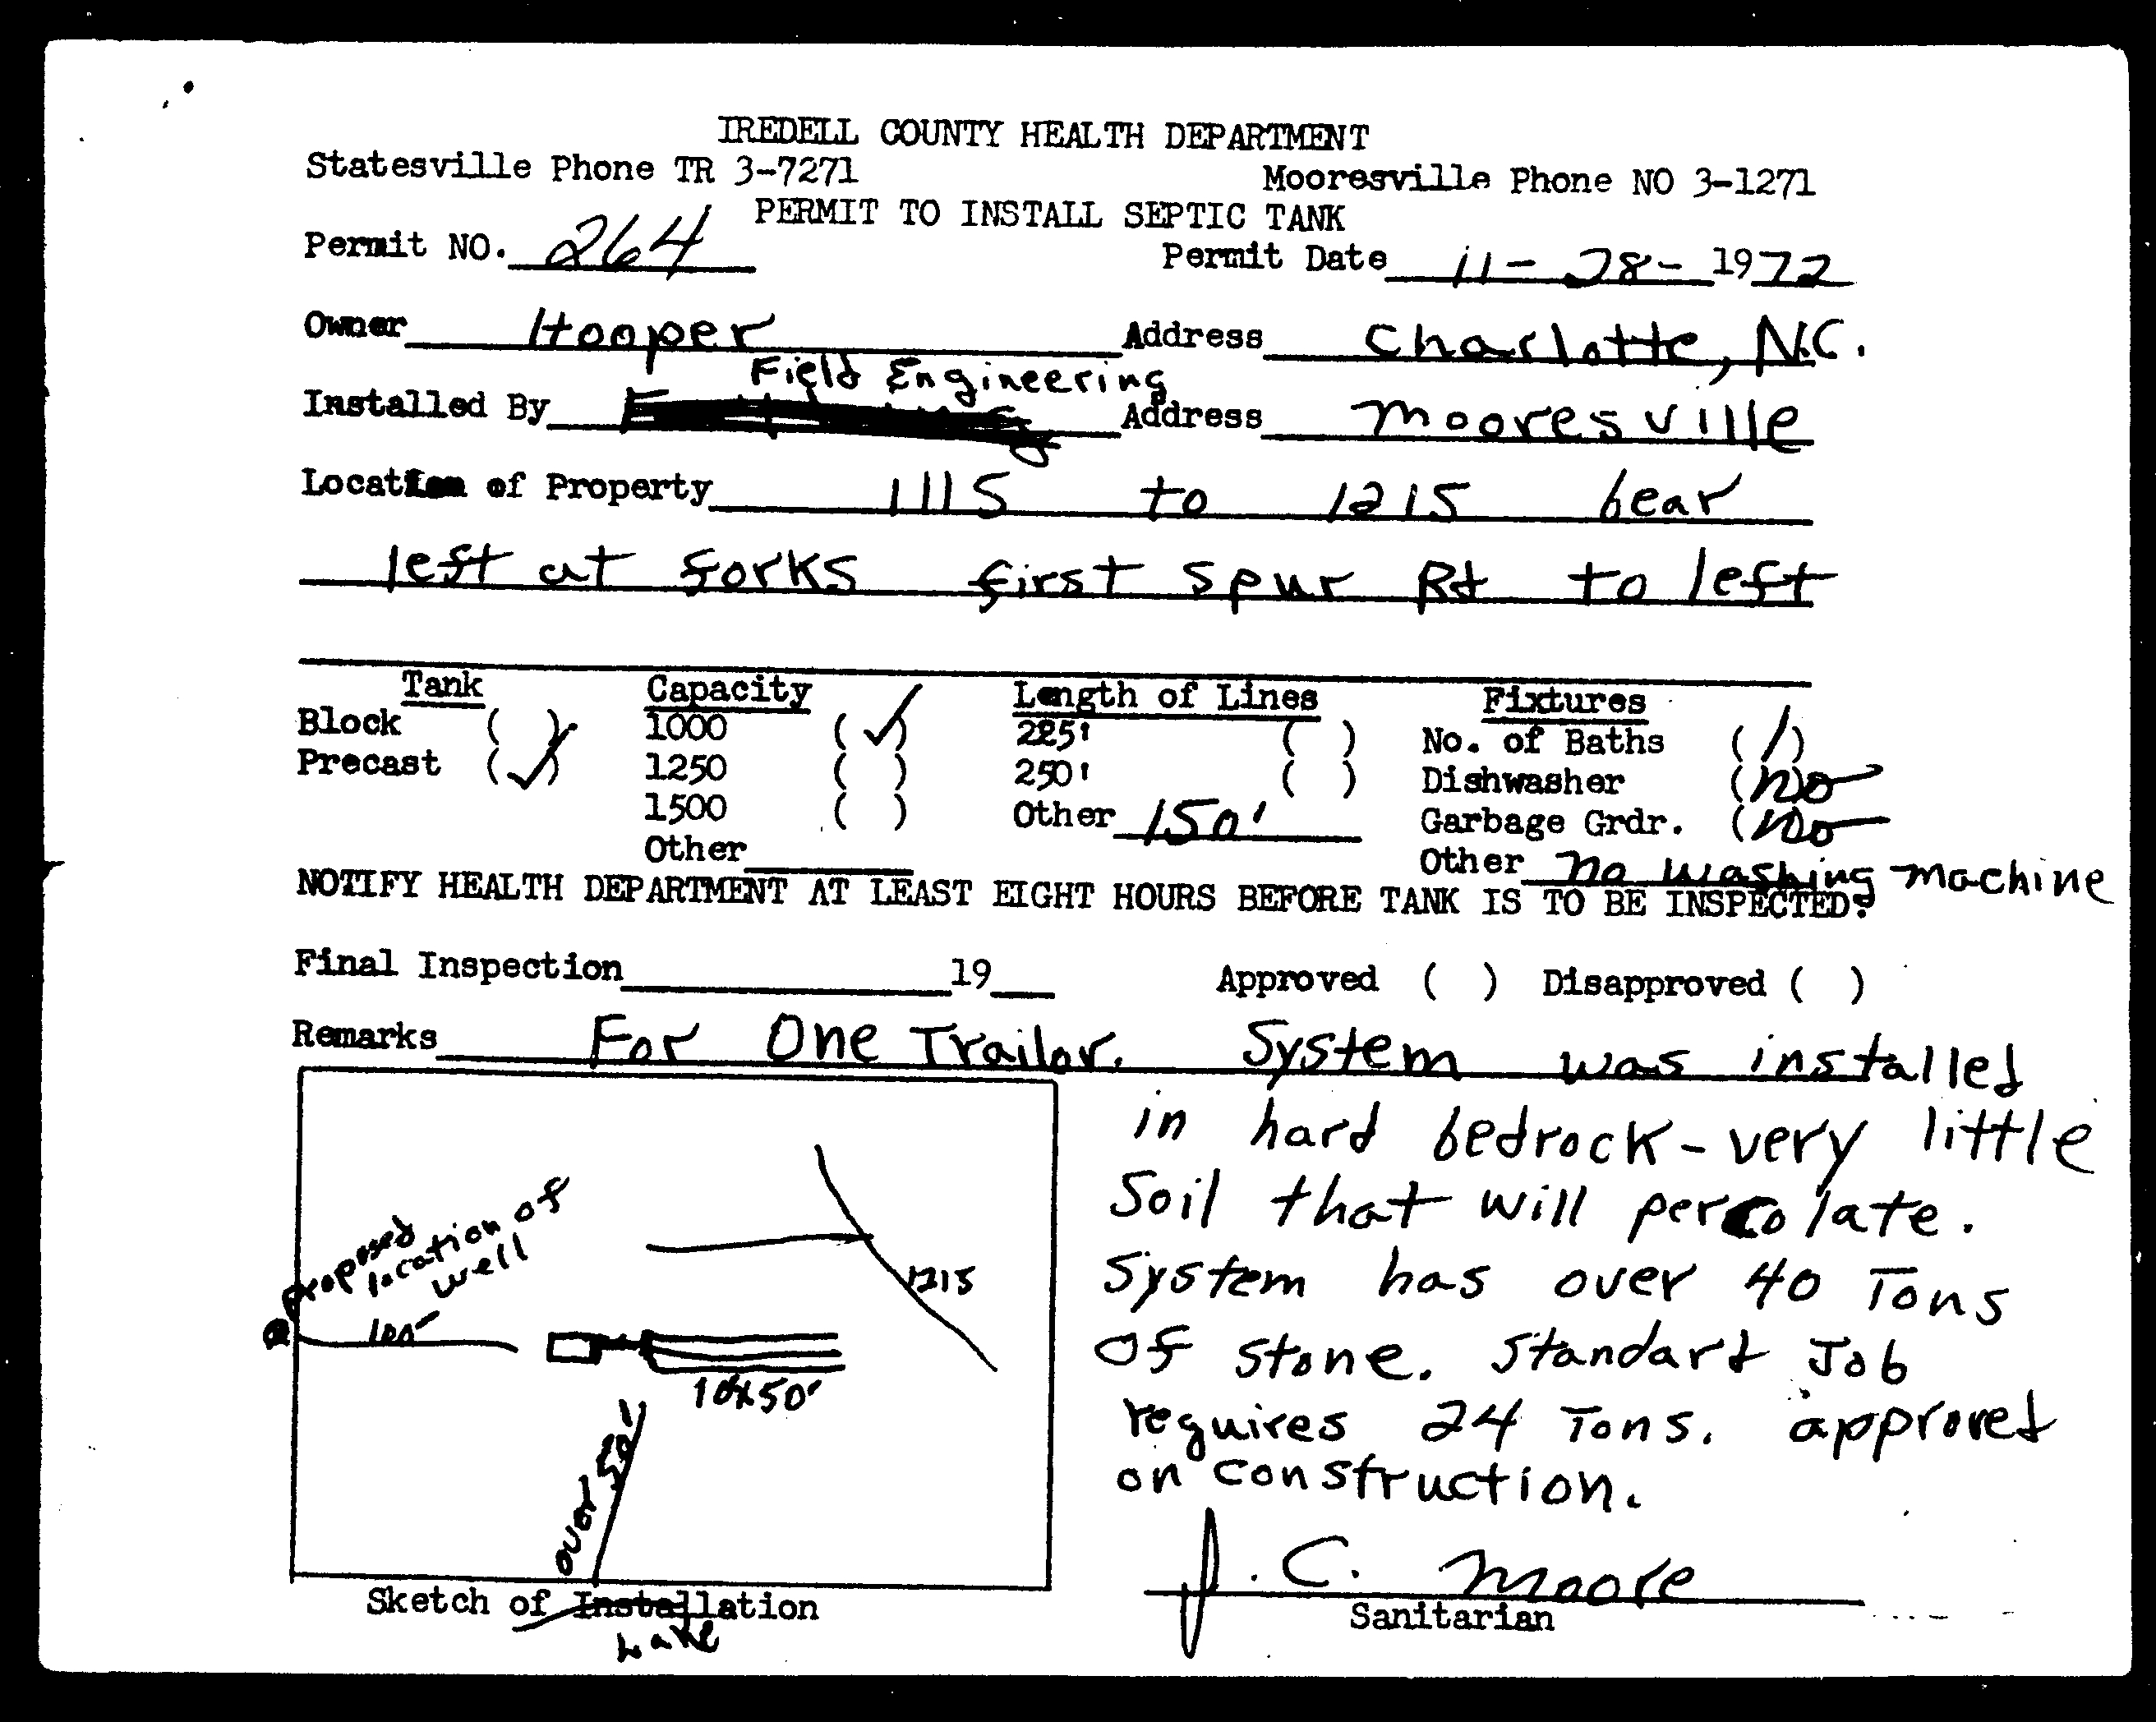 IREDELL COUNTY HEALTH DEPARTMENT
Statesville Phone TR 3-7271 Mooresville Phone NO 3-1271
PERMIT TO INSTALL SEPTIC TANK
Permit NO. 264 Permit Date 11-28-1972
Owner Hooper Address Charlotte, N.C.
Field Engineering
Installed By Address Mooresville
Location of Property 1115 to 1215 bear
left at forks first spur Rd to left
Tank Capacity Length of Lines Fixtures
Block ( ) 1000 (✓) 225' ( ) No. of Baths (1)
Precast (✓) 1250 ( ) 250' ( ) Dishwasher (No)
1500 ( ) Other 150' Garbage Grdr. (No)
Other Other no washing machine
NOTIFY HEALTH DEPARTMENT AT LEAST EIGHT HOURS BEFORE TANK IS TO BE INSPECTED.
Final Inspection 19 Approved ( ) Disapproved ( )
Remarks For One Trailor. System was installed
in hard bedrock - very little
Soil that will percolate.
System has over 40 Tons
of stone. Standard Job
requires 24 Tons. approved
on construction.
proposed
location of
well
100'
1215
10x50'
over 50'
J. C. Moore
Sketch of Installation Sanitarian
Lake